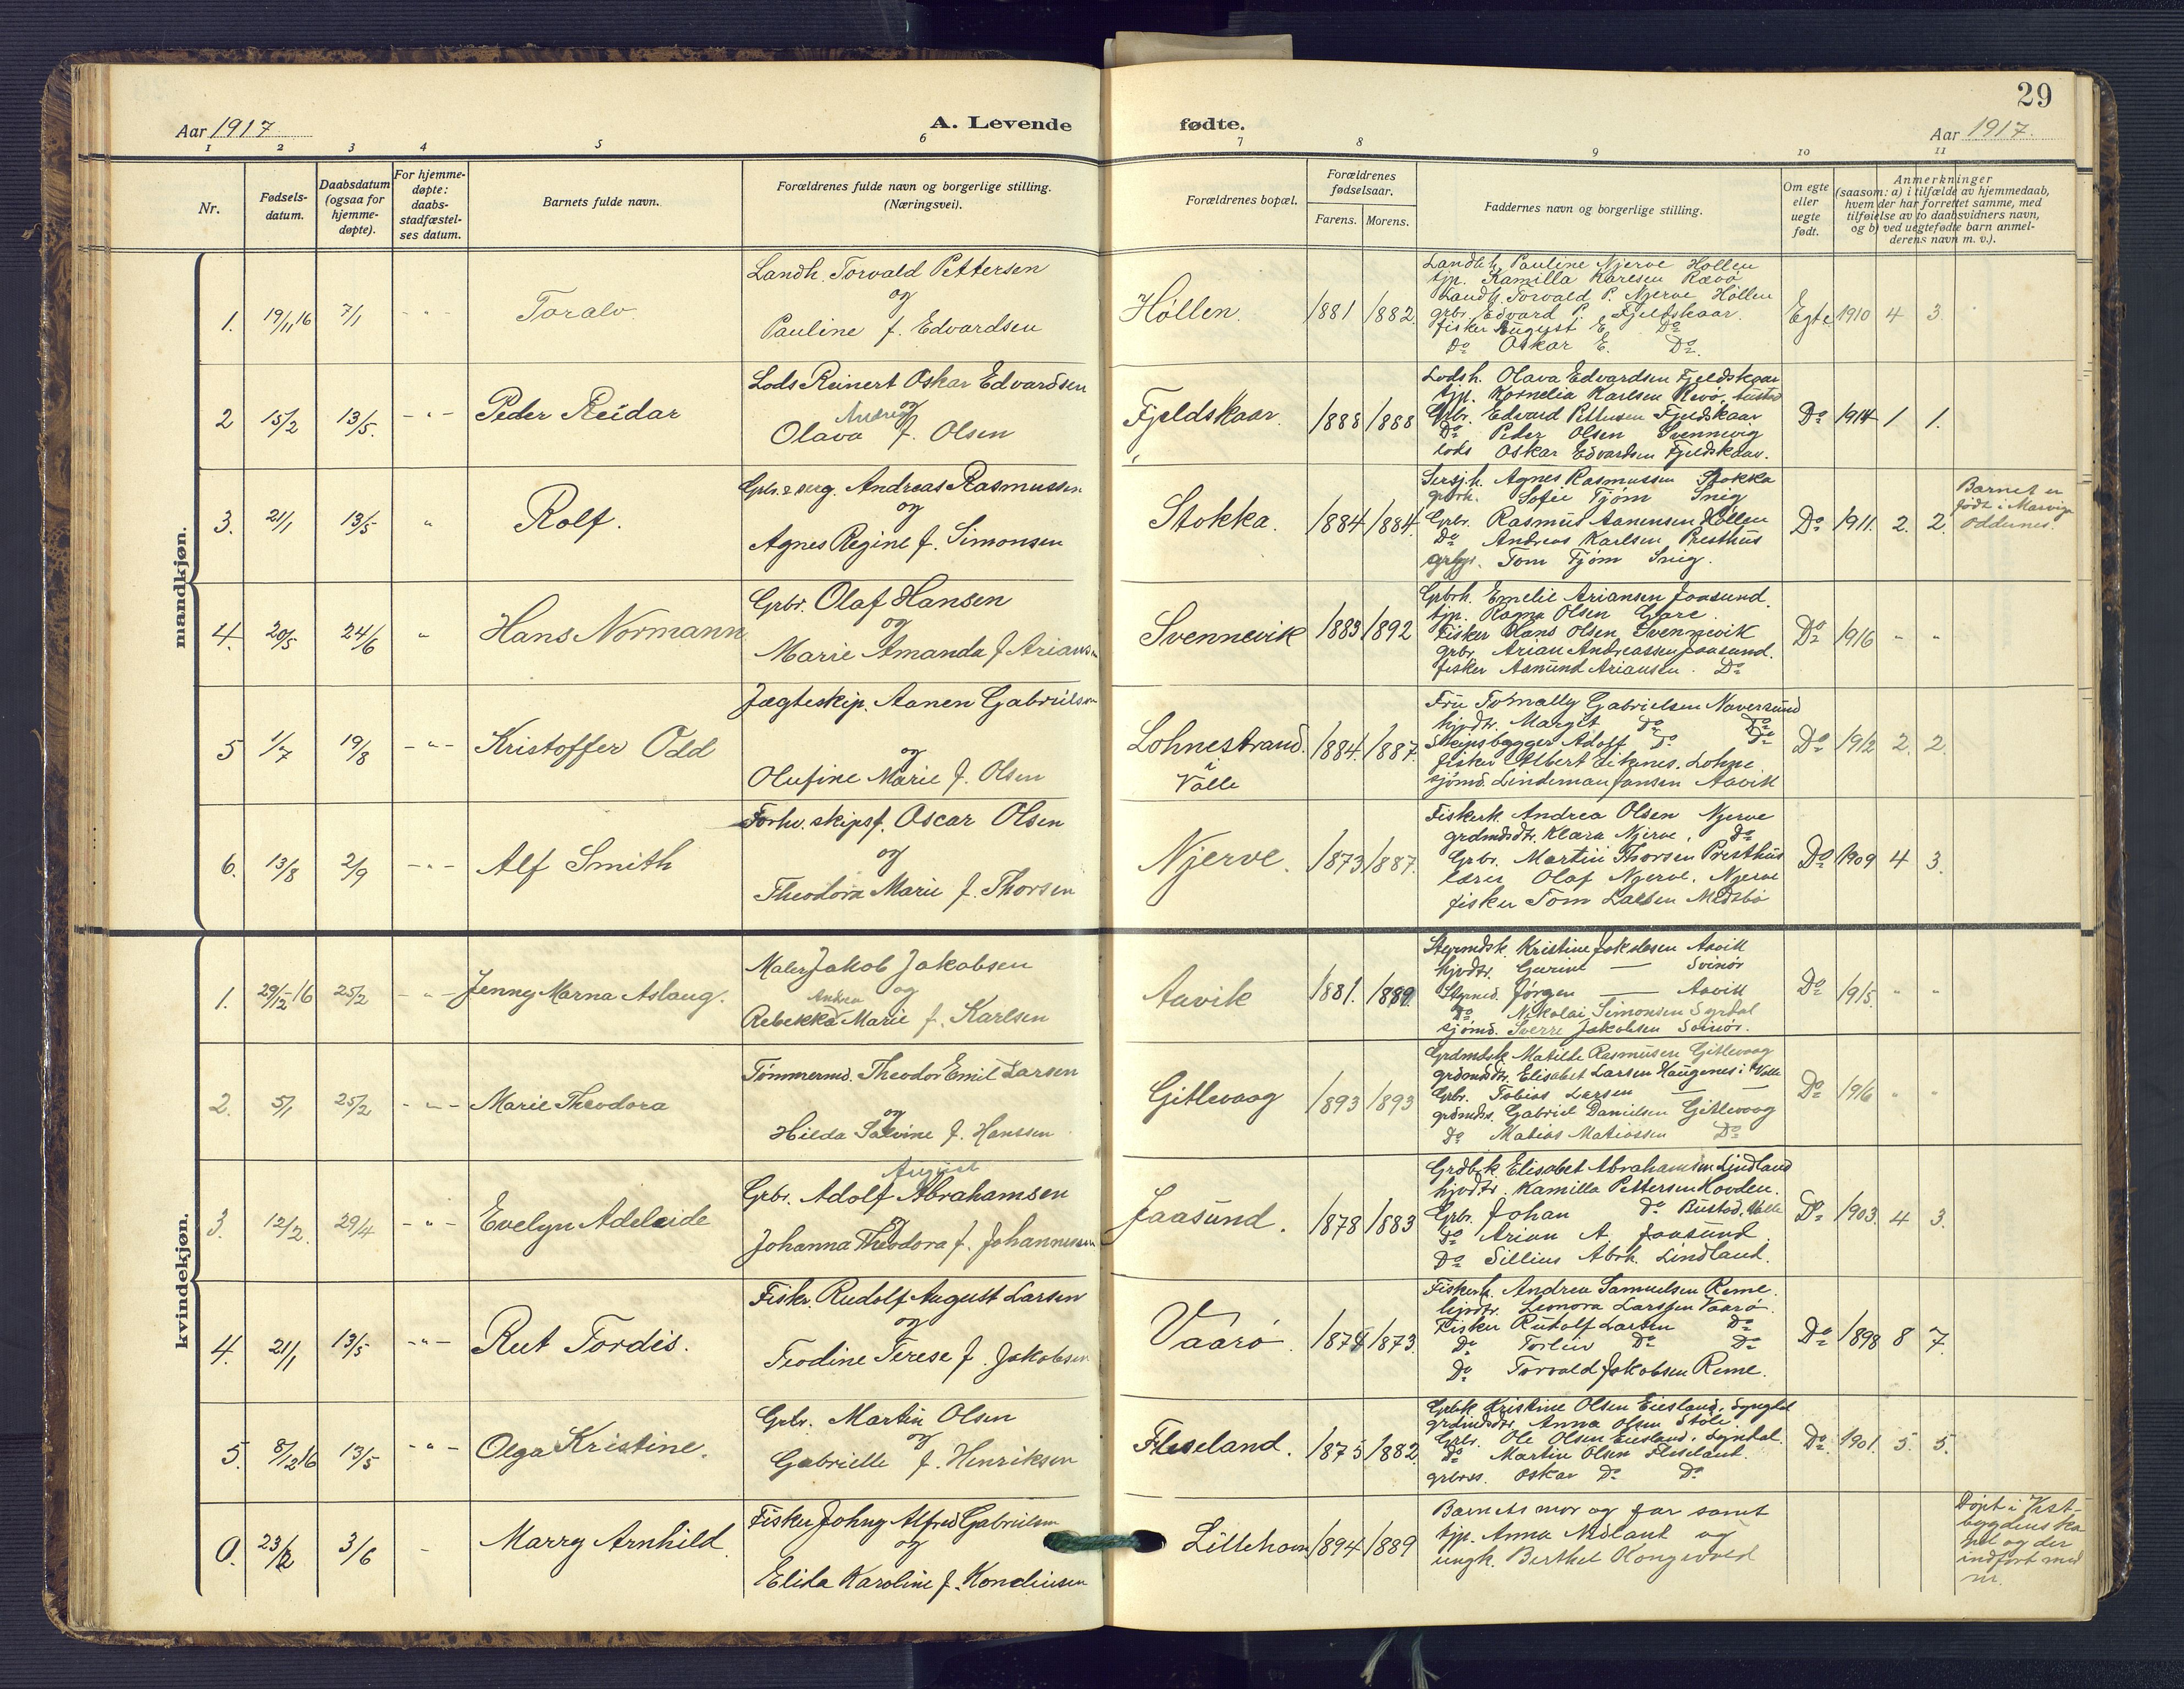 Aar 1917
A. Levende
fødte.
29
Aar 1917.
1 2 3 4 5 6 7 8 9 10 11
Nr.
Fødsels-
datum.
Daabsdatum
(ogsaa for
hjemme-
døpte).
For hjemme-
døpte:
daabs-
stadfæstel-
ses datum.
Barnets fulde navn.
Forældrenes fulde navn og borgerlige stilling.
(Næringsvei).
Forældrenes bopæl.
Forældrenes
fødselsaar.
Farens. Morens.
Faddernes navn og borgerlige stilling.
Om egte
eller
uegte
født.
Anmerkninger
(saasom: a) i tilfælde av hjemmedaab,
hvem der har forrettet samme, med
tilføielse av to daabsvidners navn,
og b) ved uegtefødte barn anmel-
derens navn m. v.).
mandkjøn.
1. 19/11 16 7/1 - " - Toralv
Landh. Torvald Pettersen
og
Pauline f. Edvardsen
Høllen. 1881 1882.
Landh. Pauline Njerve Høllen
tjp. Kamilla Karlsen Rævø
Landh. Torvald P. Njerve Høllen
grbr. Edvard P. Fjeldskaar.
fisker August E. Do
Do Oskar E. Do
Egte 1910 4 3.
2 15/2 13/5. - " - Peder Reidar
Lods Reinert Oskar Edvardsen
og
Andrea
Olava f. Olsen
Fjeldskaar. 1888 1888
Lodsh. Olava Edvardsen Fjeldskaar
tjp. Kornelia Karlsen Revø,
Grbr. Edvard Pettersen Fjeldskaar
Do Peder Olsen Svennevig
lods Oskar Edvardsen Fjeldskaar.
Do 1914 1 1.
3. 21/1 13/5 " Rolf.
Grbr. & serg. Andreas Rasmussen
og
Agnes Regine f. Simonsen
Stokka. 1884 1884.
Sersj.h. Agnes Rasmussen Stokka
grbrh. Sofie Tjøm Snig
Grbr. Rasmus Aanensen Høllen
Do Andreas Karlsen Presthus
Tom Tjøm Snig.
Do 1911. 2. 2.
Barnet er
født i Marvig
Oddernes.
4. 20/5 24/6 " Hans Normann
Grbr. Olaf Hansen
og
Marie Amanda f. Ariansen
Svennevik 1883 1892
Grbrh. Emelie Ariansen Jaasund.
tjp. Ragna Olsen Gare
Fisker Hans Olsen Svennevik
grbr. Arian Andreassen Jaasund.
fisker Aamund Ariansen. Do
Do 1916 " "
5 1/7 19/8 - " - Kristoffer Odd
Jægteskip. Aanen Gabrielsen
og
Olufine Marie f. Olsen
Lohnestrand.
i
Valle
1884. 1887.
Fru Tomally Gabrielsen Naversund
hjvdtr. Margit Do Do
Skipsbygger Adolf Do Do
fisker Albert Eikenes. Lohne
sjømd. Lindeman Jansen Aavik
Do 1912 2. 2.
6. 13/8 2/9 - " - Alf Smith
Forhv. skipsf. Oscar Olsen
og
Theodora Marie f. Thorsen
Njerve. 1873 1887.
Fiskerk. Andrea Olsen Njerve
grdmdsdtr. Klara Njerve, do
Grbr. Martin Thorsen Presthus
lærer Olaf Njerve. Njerve
fisker Tom Larsen Medsbø
Do 1909 4 3.
kvindekjøn.
1. 29/12 16 25/2 - " - Jenny Marna Aslaug.
Maler Jakob Jakobsen
og
Andrea
Rebekka Marie f. Karlsen
Aavik 1881. 1889.
Styrmdsk. Kristine Jakobsen Aavik
hjvdtr. Gurine — Svinør
Styrmd. Jørgen — Aavik
Do Nikolai Simonsen Syrdal
sjømd. Sverre Jakobsen Svinør.
Do 1915. " "
2. 5/1 25/2 - " - Marie Theodora
Tømmermd. Theodor Emil Larsen
og
Hilda Salvine f. Hanssen
Gitlevaag 1893 1893
Grdmdsk. Matilde Rasmusen Gitlevaag
grdmdsdtr. Elisabet Larsen Haugenes i Valle
Grbr. Tobias Larsen — —
grdmds. Gabriel Danielsen Gitlevaag
Do Matias Matiassen Do
Do 1916 " "
3. 12/2. 29/4 - " - Evelyn Adelaide
August
Grbr. Adolf Abrahamsen
og
Johanna Theodora f. Johannessen
Jaasund. 1878 1883
Grdbr.k. Elisabet Abrahamsen Lindland
hjvdtr. Kamilla Pettersen Hovden.
Grbr. Johan Do Bustad, Valle
Do Arian A. Jaasund
Do Sillius Abrh. Lindland.
Do 1903. 4 3.
4. 21/1 13/5 - " - Rut Tordis.
Fiskr. Rudolf August Larsen
og
Teodine Terese f. Jakobsen
Vaarø. 1874 1873.
Fiskerk. Andrea Samuelsen Reme.
hjvdtr. Leonora Larssen Vaarø.
Fisker Rudolf Larsen Do
Do Torleiv Do Do
Do Torvald Jakobsen Reme.
Do 1898 8 7.
5. 8/12 16 13/5 - " - Olga Kristine.
Grbr. Martin Olsen
og
Gabrielle f. Henriksen
Fleseland. 1875 1882.
Grbk. Kristine Olsen Eiesland,
grdmdsdtr. Anna Olsen Støle.
Grbr. Ole Olsen Eiesland, Lyndal.
Do Martin Olsen Fleseland.
grbrss. Oskar Do Do
Do 1901. 5. 5.
0. 23/2 3/6 - Marry Arnhild.
Fisker Johny Alfred Gabrielsen
og
Elida Karoline f. Kondinsen
Lillehavn 1894 1889
Barnets mor og far samt
tjp. Anna Nedland og
ungk. Berthel Kongevold
Døpt i Vest-
bygdens ka
pel og der
indført med
nr.